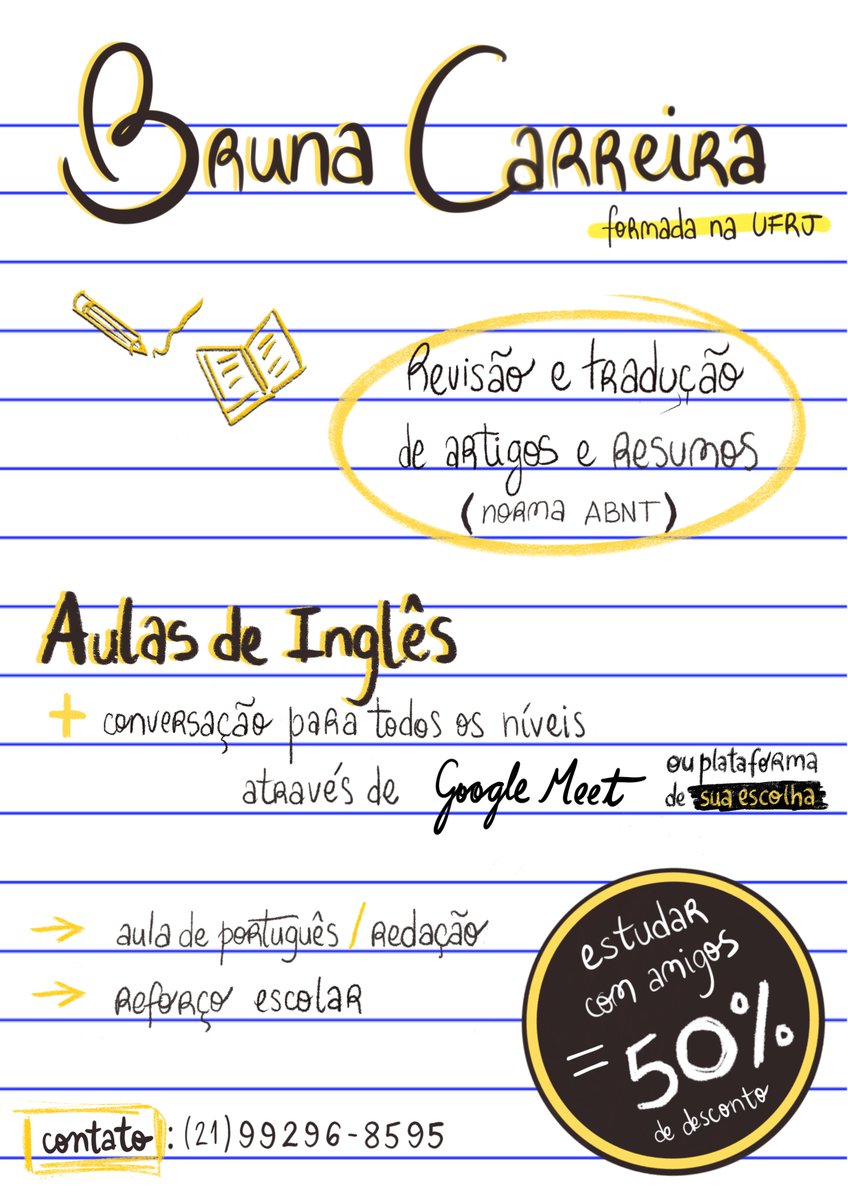 Bruna Carreira
formada na UFRJ
Revisão e tradução
de artigos e resumos
(norma ABNT)
Aulas de Inglês
+ conversação para todos os níveis
através de Google Meet
ou plataforma
de sua escolha
→ aula de português / redação
→ reforço escolar
estudar
com amigos
= 50%
de desconto
contato: (21) 99296-8595